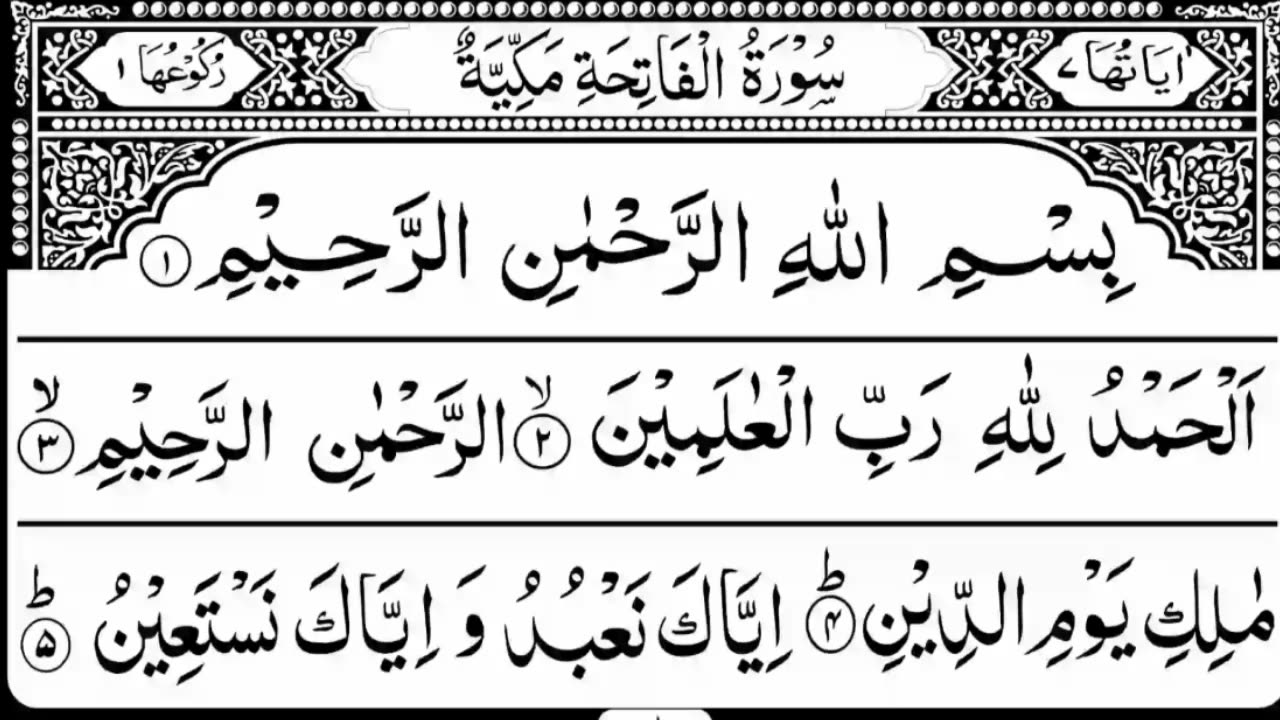 اٰيَاتُهَا ٧ سُوْرَةُ الْفَاتِحَةِ مَكِّيَّةٌ رُكُوْعُهَا ١
بِسْمِ اللهِ الرَّحْمٰنِ الرَّحِيْمِ ١
اَلْحَمْدُ لِلّٰهِ رَبِّ الْعٰلَمِيْنَ ۙ ٢ الرَّحْمٰنِ الرَّحِيْمِ ۙ ٣
مٰلِكِ يَوْمِ الدِّيْنِ ؕ ۴ اِيَّاكَ نَعْبُدُ وَ اِيَّاكَ نَسْتَعِيْنُ ؕ ۵